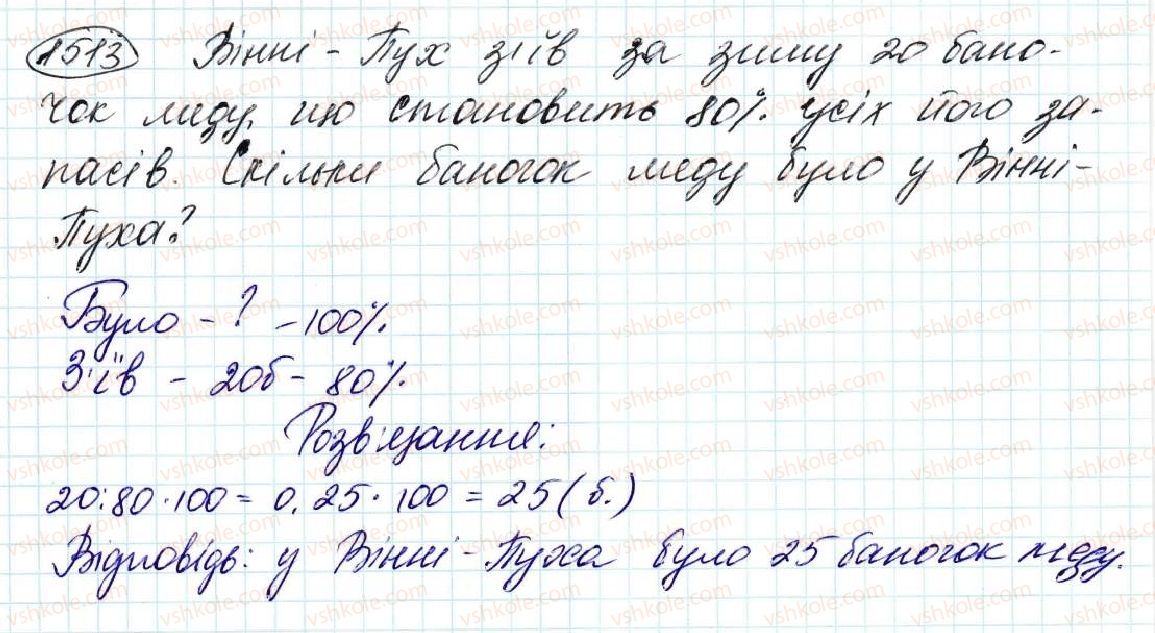 1513 Вінні - Пух з'їв за зиму 20 бано-
чок меду, що становить 80% усіх його за-
пасів. Скільки баночок меду було у Вінні-
Пуха?
Було - ? - 100%.
З'їв - 20б - 80%.
Розв'язання:
20:80·100 = 0,25·100 = 25 (б.)
Відповідь: у Вінні - Пуха було 25 баночок меду.